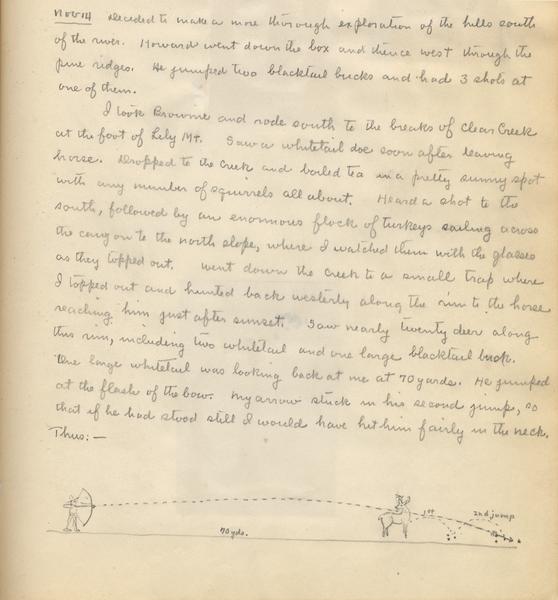 Nov 14 Decided to make a more thorough exploration of the hills south
of the river. Howard went down the box and thence west through the
pine ridges. He jumped two blacktail bucks and had 3 shots at
one of them.
I took Brownie and rode south to the breaks of Clear Creek
at the foot of Lily Mt. Saw a whitetail doe soon after leaving
horse. Dropped to the creek and boiled tea in a pretty sunny spot
with any number of squirrels all about. Heard a shot to the
south, followed by an enormous flock of turkeys sailing across
the canyon to the north slope, where I watched them with the glasses
as they topped out. Went down the creek to a small trap where
I topped out and hunted back westerly along the rim to the horse
reaching him just after sunset. Saw nearly twenty deer along
this rim, including two whitetail and one large blacktail buck.
One large whitetail was looking back at me at 70 yards. He jumped
at the flash of the bow. My arrow stuck in his second jump, so
that if he had stood still I would have hit him fairly in the neck.
Thus:—
1st 2nd jump
70 yds.